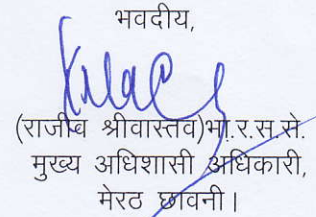 भवदीय,
(राजीव श्रीवास्तव)भा.र.स.से.
मुख्य अधिशासी अधिकारी,
मेरठ छावनी।